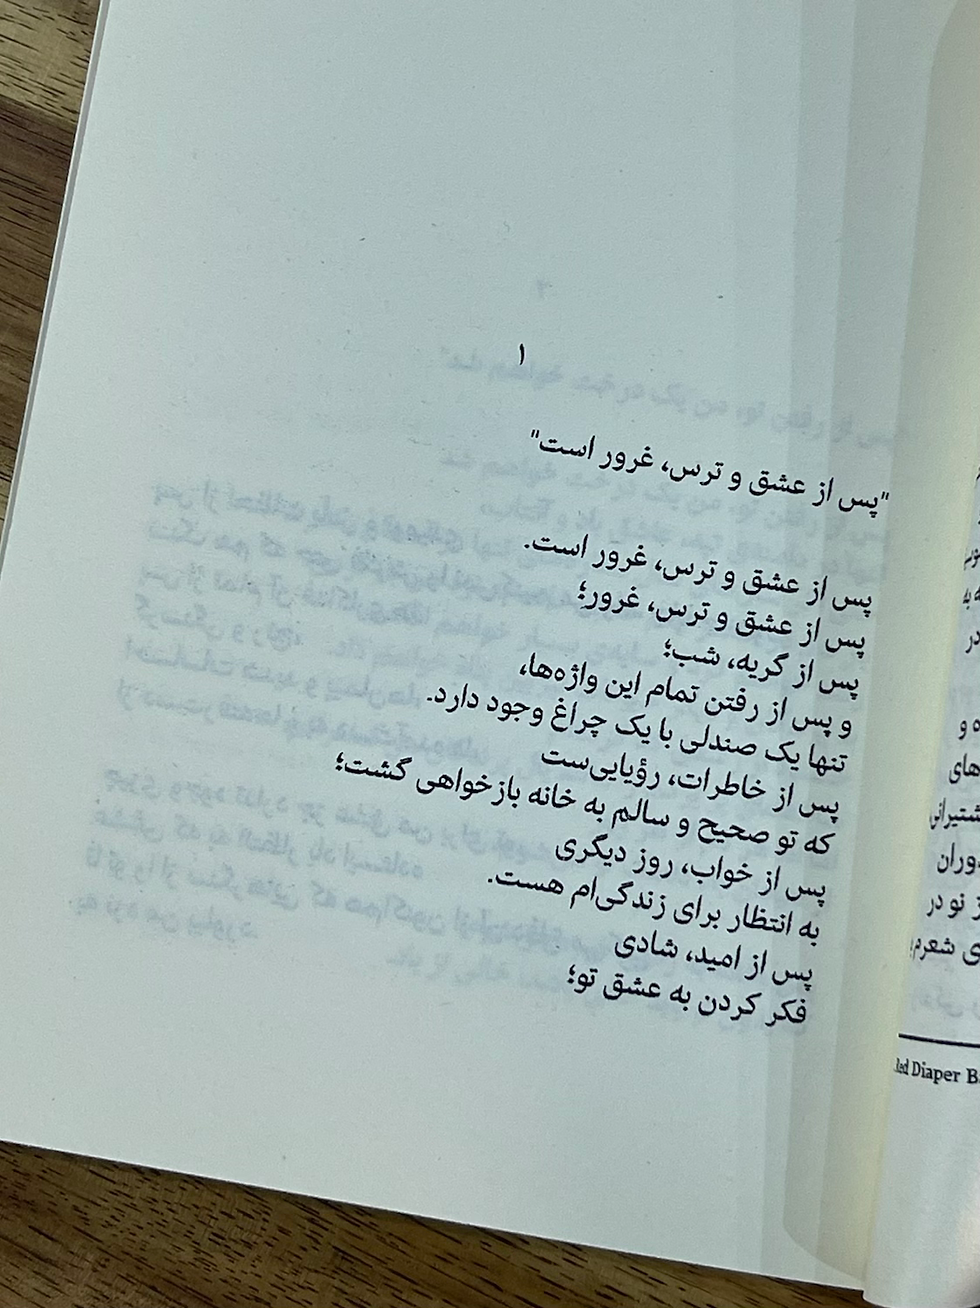 ۱
"پس از عشق و ترس، غرور است"
پس از عشق و ترس، غرور است.
پس از عشق و ترس، غرور؛
پس از گریه، شب؛
و پس از رفتن تمام این واژه‌ها،
تنها یک صندلی با یک چراغ وجود دارد.
پس از خاطرات، رؤیایی‌ست
که تو صحیح و سالم به خانه بازخواهی گشت؛
پس از خواب، روز دیگری
به انتظار برای زندگی‌ام هست.
پس از امید، شادی
فکر کردن به عشق تو؛
ه و
های
شتیرانی
دوران
ز نو در
ی شعرم
Red Diaper B